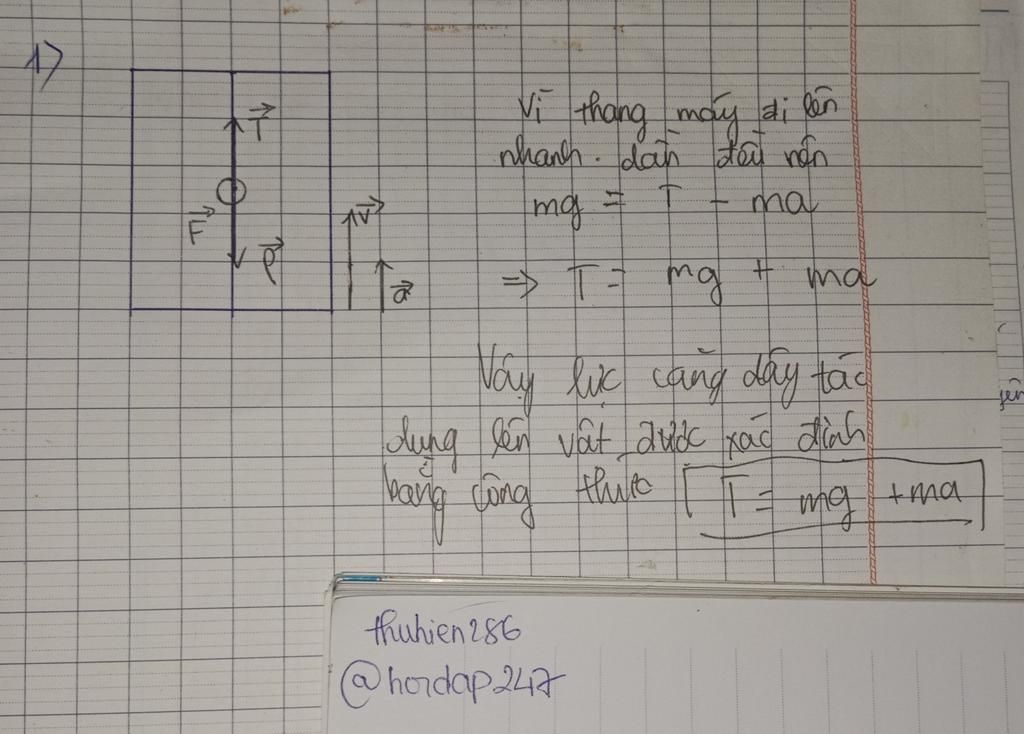 1)
T
F
P
v
a
Vì thang máy đi lên
nhanh dần đều nên
mg = T - ma
=> T = mg + ma
Vậy lực căng dây tác
dụng lên vật được xác định
bằng công thức T = mg + ma
thuhien286
@hoidap247